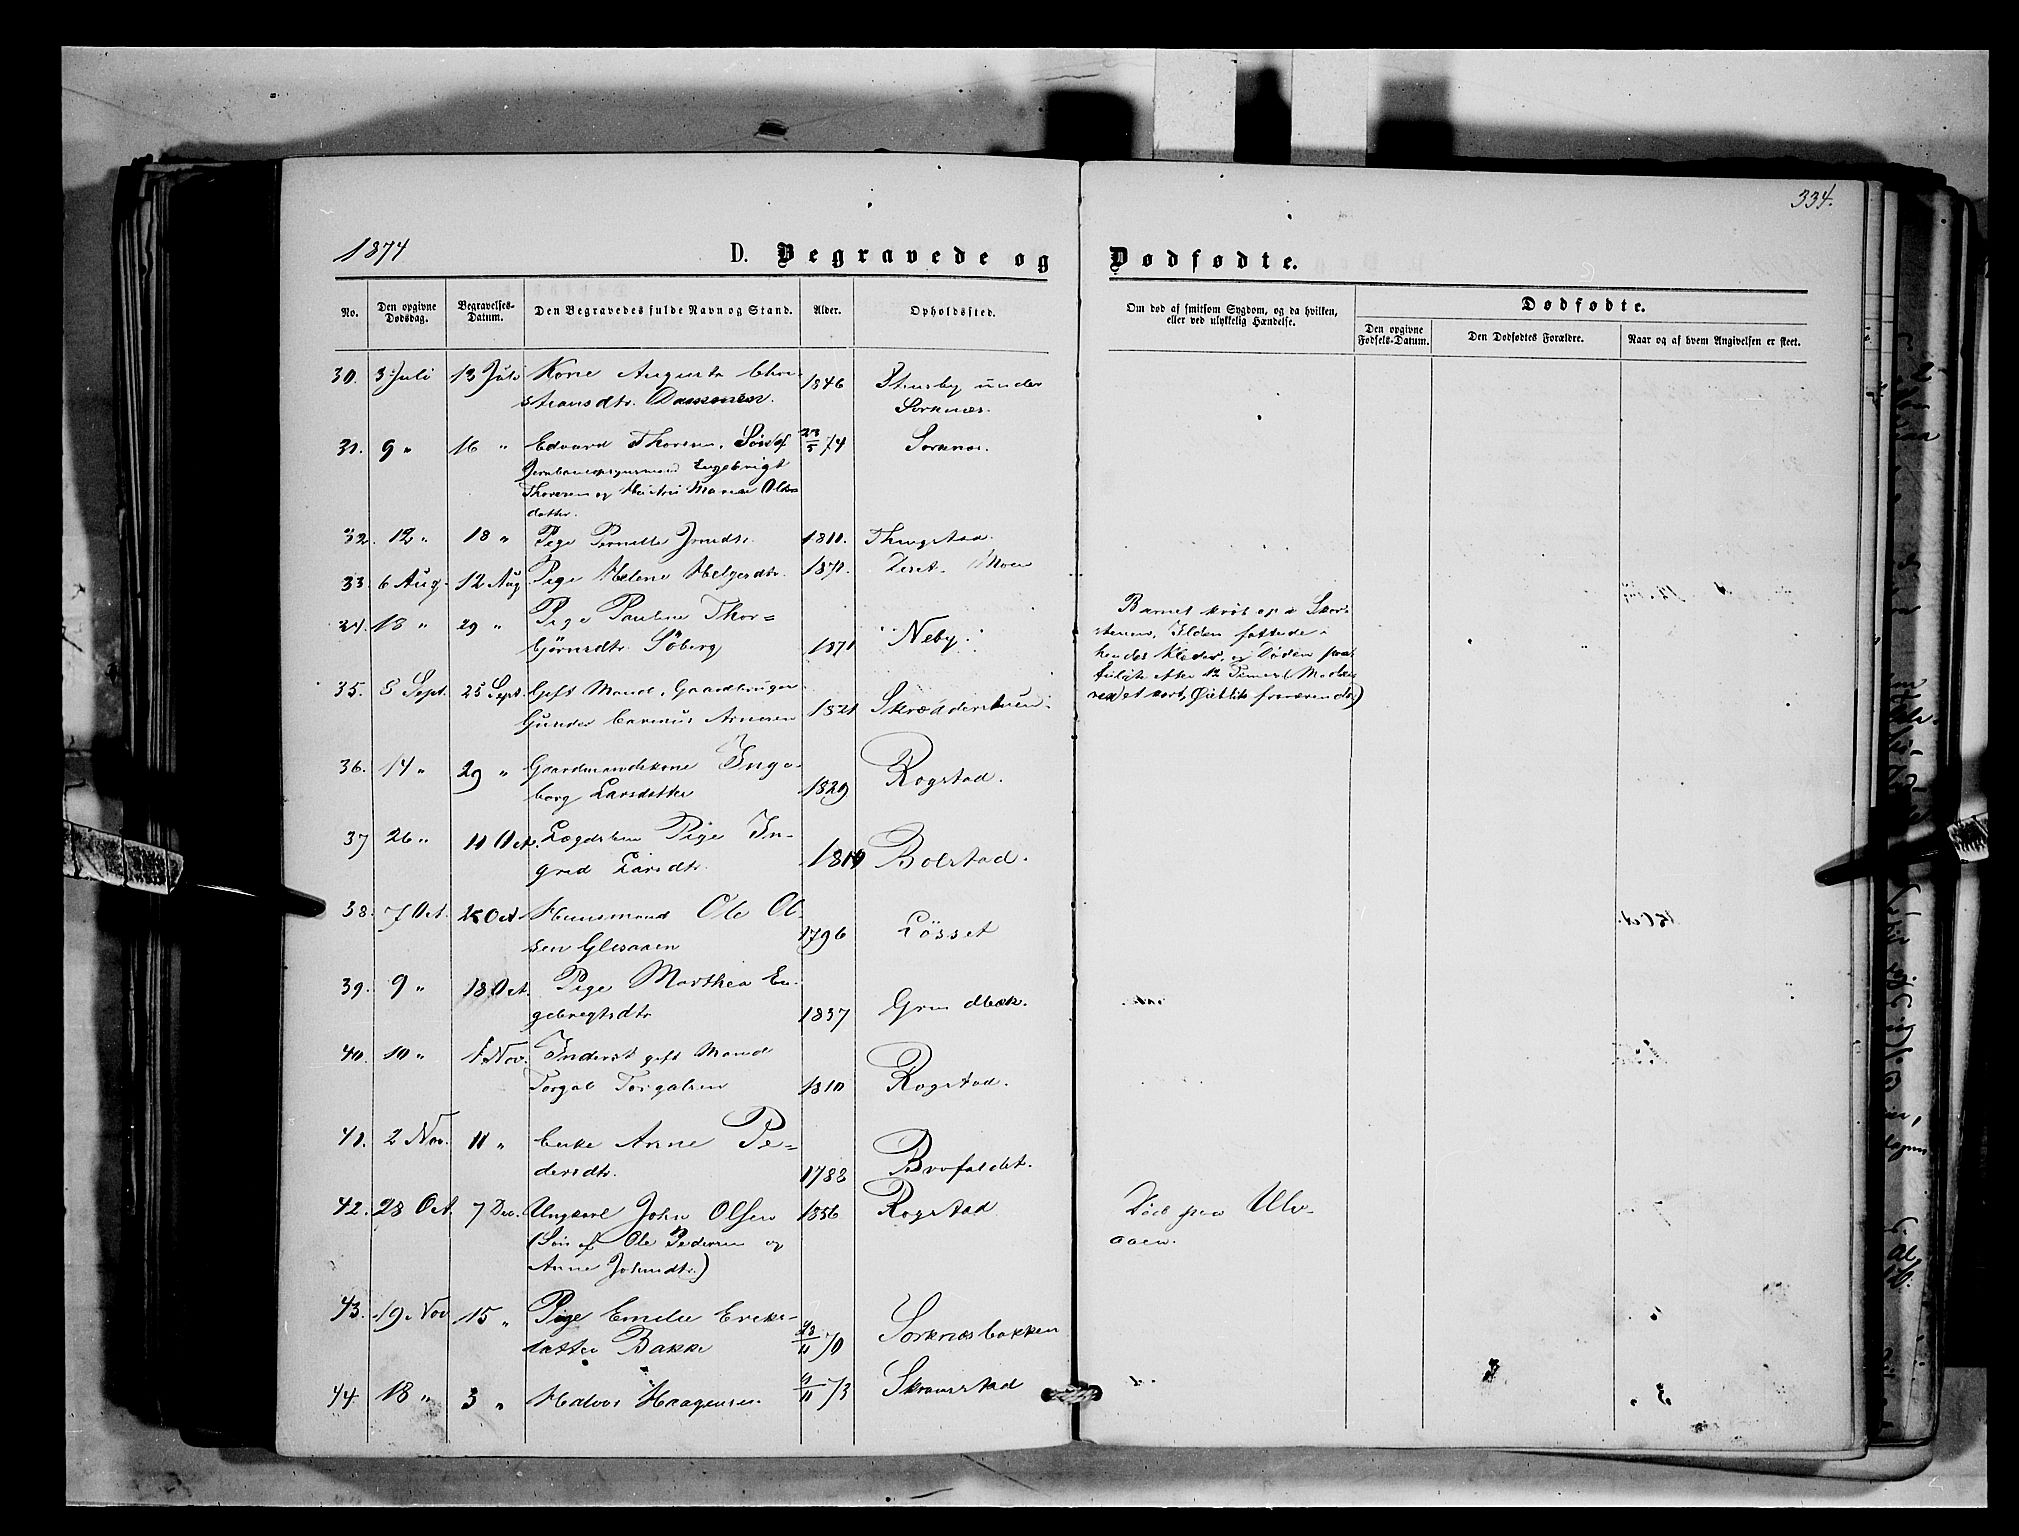 334.
1874
D. Begravede og Dødfødte.
No.
Den opgivne Dødsdag.
Begravelses-Datum.
Den Begravedes fulde Navn og Stand.
Alder.
Opholdssted.
Om død af smitsom Sygdom, og da hvilken, eller ved ulykkelig Hændelse.
Dødfødte.
Den opgivne Fødsels-Datum.
Den Dødfødtes Forældre.
Naar og af hvem Angivelsen er skeet.
30. 3 Juli 13 Juli Kone Augusta Chri- 1846 under
stiansdtr. Sorknæs.
31. 9 " 16 " Edvard Thoresen, Søn af 23/5 74 Sorknæs.
Engebrigt
Thoresen og Hustru Maren Ols-
datter.
32. 12 " 18 " Pige Pernille 1810. Thingstad.
33. 6 Aug. 12 Aug. Pige Helene Helgesdtr. 1871. Moen
34. 18 " 29 " Pige Pauline Thor- Barnet krøb op i Skor-
bjørnsdtr. Söberg 1871 Neby. stenen, Ilden fattede i
hendes Klæder, og Døden
efter 12 Timer. (Moderen
et kort Øieblik fraværende)
35. 8 Sept. 25 Sept. Gift Mand, Gaardbruger
Gunder Arnesen 1821 Skrædderstuen.
36. 14 " 29 " Gaardmandskone Inge-
borg Larsdatter 1829 Rogstad.
37 26 " 11 Oct. Lægdslem Pige In-
grid Larsdtr. 1810 Bolstad.
38. 7 Oct. 25 Oct. Huusmand Ole Ol-
sen Glesaaen 1796 Lösset
39. 9 " 18 Oct. Pige Marthea En-
gebregtsdtr 1837 Grundbæk.
40. 10 " 1 Nov. Inderst gift Mand
Torgal Torgalsen 1810 Rogstad.
41. 2 Nov. 11 " Enke Anne Pe-
dersdtr. 1788 Brofaldet.
42. 28 Oct. 7 Dec. Ungkarl John Olsen 1856 Rogstad Død paa Ulv-
(Søn af Ole Pedersen og aaen.
Anne Johnsdtr.)
43. 19 Nov 15 " Pige Emilie Eriks-
datter Bakke 23/11 70 Sorknæsbakken
44. 18 " 3 " Halvor Haagensen. 9/11 73 Skramstad